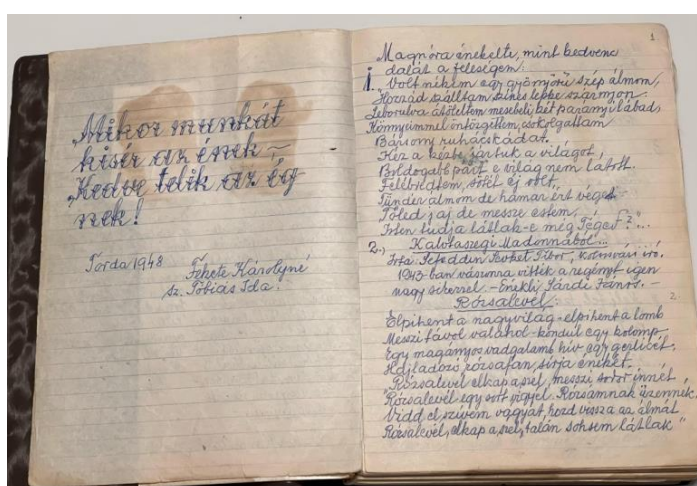 Mikor munkát
kisér az ének –
Kedve telik az ég
nek!
Torda 1948
Fekete Károlyné
sz. Tóbiás Ida.
1
Magnóra énekelte, mint kedvenc
dalát a feleségem.
1. Volt nékem egy gyönyörű szép álmom,
Hozzád szálltam színes lepke szárnyon.
Leborulva átöleltem mesebeli két parányi lábad,
Könnyümmel öntözgettem, csókolgattam
Bársony ruhácskádat.
Kéz a kézbe jártuk a világot,
Boldogabb párt e világ nem látott.
Felébredtem, sötét éj volt,
Tündér álmom de hamar ért véget
Tőled jaj de messze estem,
Isten tudja látlak-e még Téged?...
2.) Kalotaszegi Madonnából...
Irta: Tibor, kolozsvári író.
1943-ban vászonra vitték a regényt igen
nagy sikerrel. – Énekli Sárdi János. –
Rózsalevél: 2
Elpihent a nagyvilág – elpihent a lomb
Messzi távol valahol – kondul egy kolomp.
Egy magányos vadgalamb hív egy gerlicét,
Hajladozó rózsafán, sírja énekét.
"Rózsalevél elkap a szél, messzi sodor innét,
Rózsalevél egy sort vigyél Rózsámnak üzennék.
Vidd el szívem vágyát, hozd vissza az álmát
Rózsalevél, elkap a szél, talán sohsem látlak"